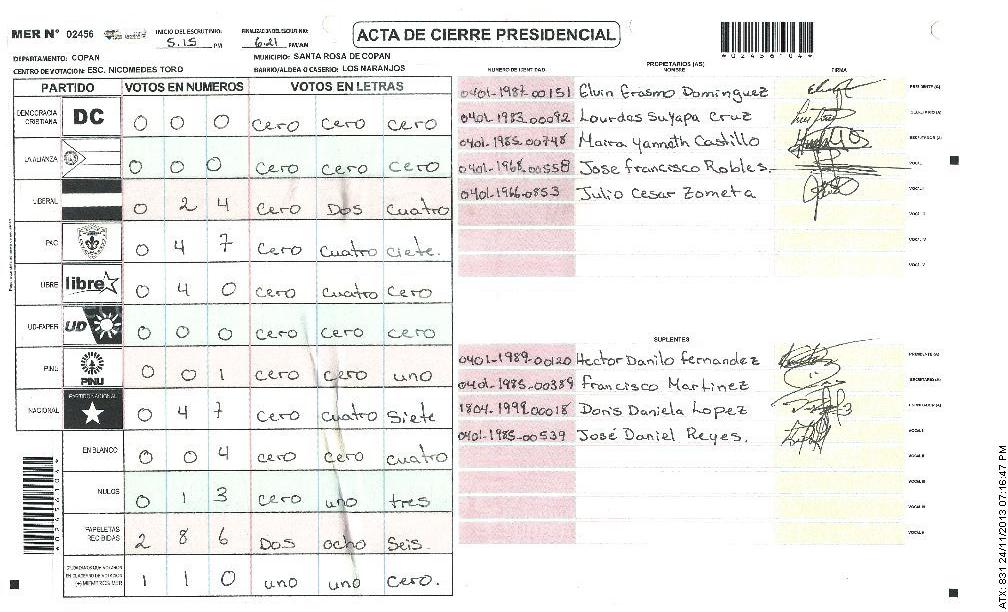 MER N° 02456
INICIO DEL ESCRUTINIO: 5.15 PM
FINALIZACION DEL ESCRUTINIO: 6:21 PM/AM
ACTA DE CIERRE PRESIDENCIAL
*02456104*
DEPARTAMENTO: COPAN
MUNICIPIO: SANTA ROSA DE COPAN
CENTRO DE VOTACION: ESC. NICOMEDES TORO
BARRIO/ALDEA O CASERIO: LOS NARANJOS
PARTIDO VOTOS EN NUMEROS VOTOS EN LETRAS
DEMOCRACIA CRISTIANA DC 0 0 0 cero cero cero
LA ALIANZA 0 0 0 cero cero cero
LIBERAL 0 2 4 cero Dos cuatro
PAC 0 4 7 cero cuatro ciete.
LIBRE libre 0 4 0 cero cuatro cero
UD-FAPER UD 0 0 0 cero cero cero
PINU PINU 0 0 1 cero cero uno
NACIONAL PARTIDO NACIONAL 0 4 7 cero cuatro siete
EN BLANCO 0 0 4 cero cero cuatro
NULOS 0 1 3 cero uno tres
PAPELETAS RECIBIDAS 2 8 6 Dos ocho seis.
CIUDADANOS QUE VOTARON EN CUADERNO DE VOTACION (+) MIEMTROS MER 1 1 0 uno uno cero.
PROPIETARIOS (AS)
NUMERO DE IDENTIDAD NOMBRE FIRMA
0401-1987-00151 Elvin Erasmo Dominguez PRESIDENTE (A)
0401-1983-00092 Lourdes Suyapa Cruz SECRETARIO (A)
0401-1985-00748 Maira Yanneth Castillo ESCRUTADOR (A)
0401-1968-00558 Jose francisco Robles. VOCAL I
0401-1966-0853 Julio Cesar Zometa VOCAL II
SUPLENTES
0401-1989-00120 Hector Danilo fernandez PRESIDENTE (A)
0401-1985-00389 francisco Martinez SECRETARIO (A)
1804-1999-00018 Doris Daniela Lopez ESCRUTADOR (A)
0401-1985-00539 José Daniel Reyes. VOCAL I
VOCAL II
VOCAL III
VOCAL IV
VOCAL V
ATX: 831 24/11/2013 07:16:47 PM